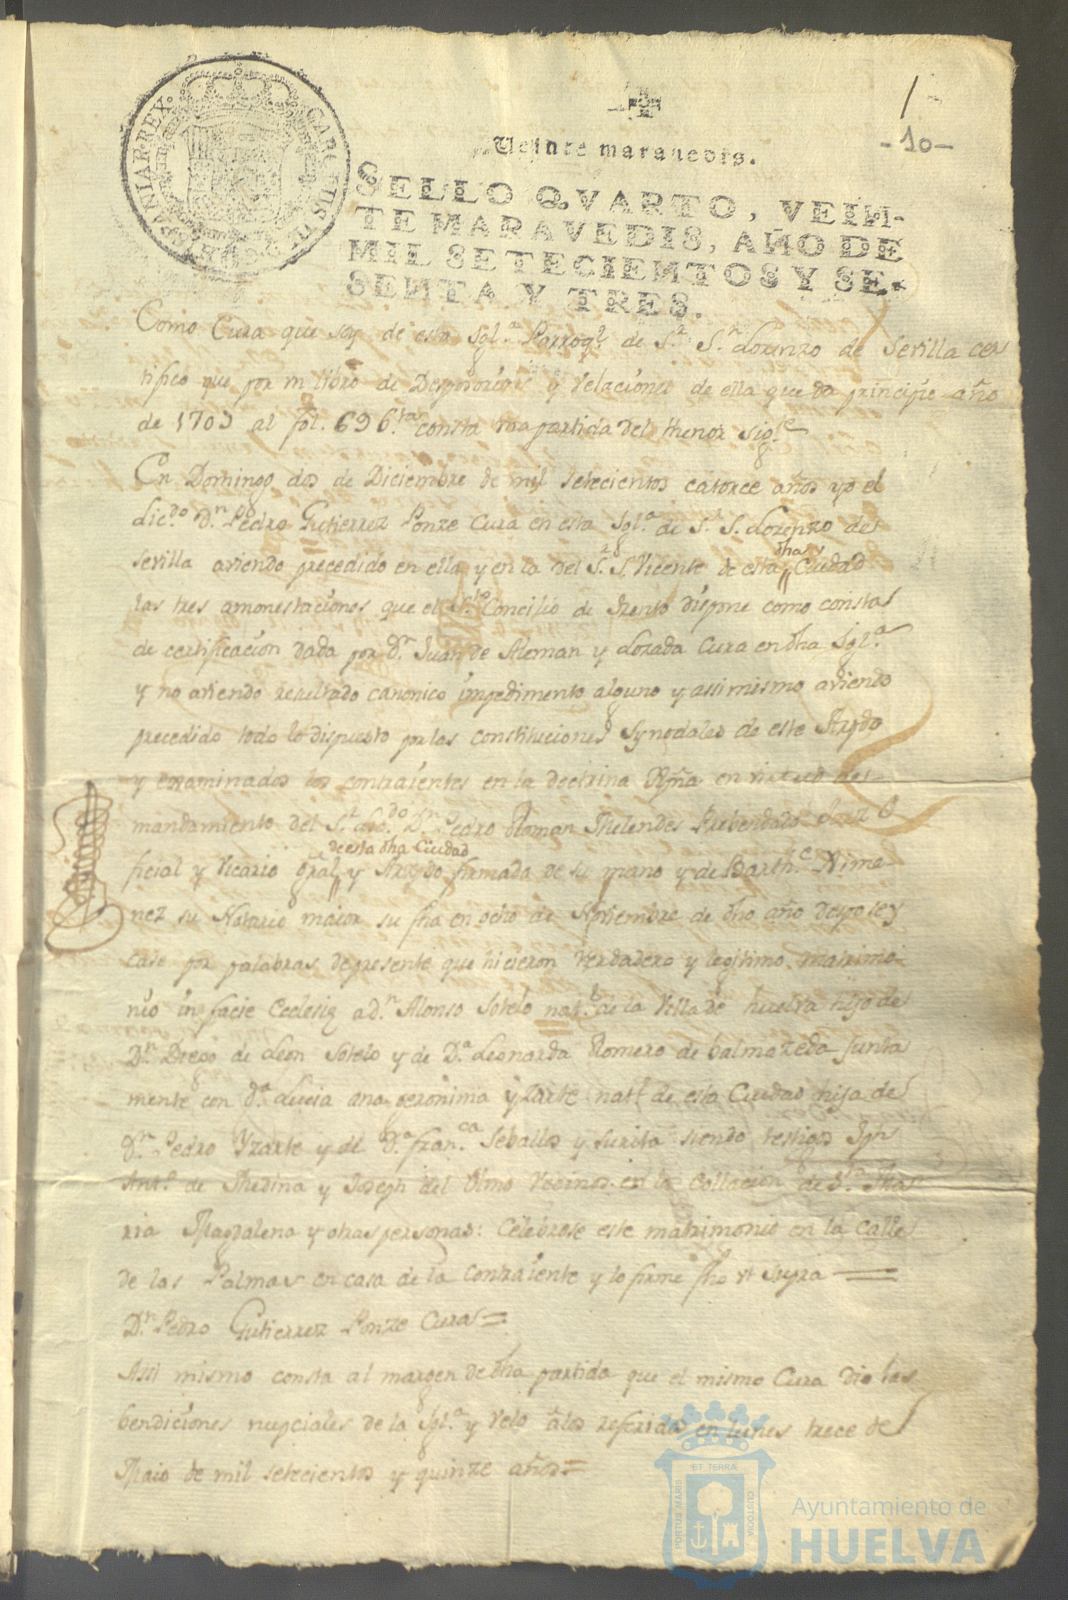 CAROLUS III D G HISPANIAR REX
1
-10-
Veinte maravedis.
SELLO QVARTO, VEIN-
TE MARAVEDIS, AÑO DE
MIL SETECIENTOS Y SE-
SENTA Y TRES.
Como Cura que soy de esta Igl.ª Parroq.l de S.r S.n Lorenzo de Sevilla cer
tifico que por un libro de Desposorios y Velaciones de ella que da principio año
de 1703 al fol. 696 consta una partida del thenor sig.te
En Domingo dos de Diciembre de mil setecientos catorce años yo el
lic.do D.n Pedro Gutierrez Ponze Cura en esta Igl.ª de S.r S. Lorenzo de
Sevilla aviendo precedido en ella y en la del S.r S. Vicente de esta dha Ciudad
las tres amonestaciones que el S.to Concilio de Trento dispone como consta
de certificacion dada por D.n Juan de Aleman y Lozada Cura en dha Igl.ª
y no aviendo resultado canonico impedimento alguno y assimismo aviendo
precedido todo lo dispuesto por las constituciones synodales de este Arzpdo
y examinados los contraientes en la doctrina Xpña en virtud de
mandamiento del S.r D.n Pedro Roman Melendes Prebendado Juez O
ficial y Vicario Gral de esta dha Ciudad y Arzpdo firmada de su mano y de Barth.e Xime
nez su Notario maior su fha en ocho de Noviembre de dho año despose y
case por palabras de presente que hicieron verdadero y legitimo matrimo
nio in facie Eclesię a D.n Alonso Sotelo nat.l de la Villa de huelva hijo de
D.n Diego de Leon Sotelo y de D.ª Leonarda Romero de balmazeda Junta
mente con D.ª Lucia Ana Geronima Yzarte nat.l de esta Ciudad hija de
D.n Pedro Yzarte y de D.ª Fran.ca Seballos y Surita siendo testigos
Ant.o de Medina y Joseph del Olmo Vecinos en la Collacion de S.ta Ma
ria Magdalena y otras personas: Celebrose este matrimonio en la calle
de las Palmas en casa de la contraiente y lo firme fho vt Supra
D.n Pedro Gutierrez Ponze Cura
Assi mismo consta al margen de dha partida que el mismo Cura dio las
bendiciones nupciales de la Igl.ª y velo a los referidos en lunes trece de
Maio de mil setecientos y quinze años
PORTUS MARIS ET TERRÆ CUSTODIA
Ayuntamiento de
HUELVA